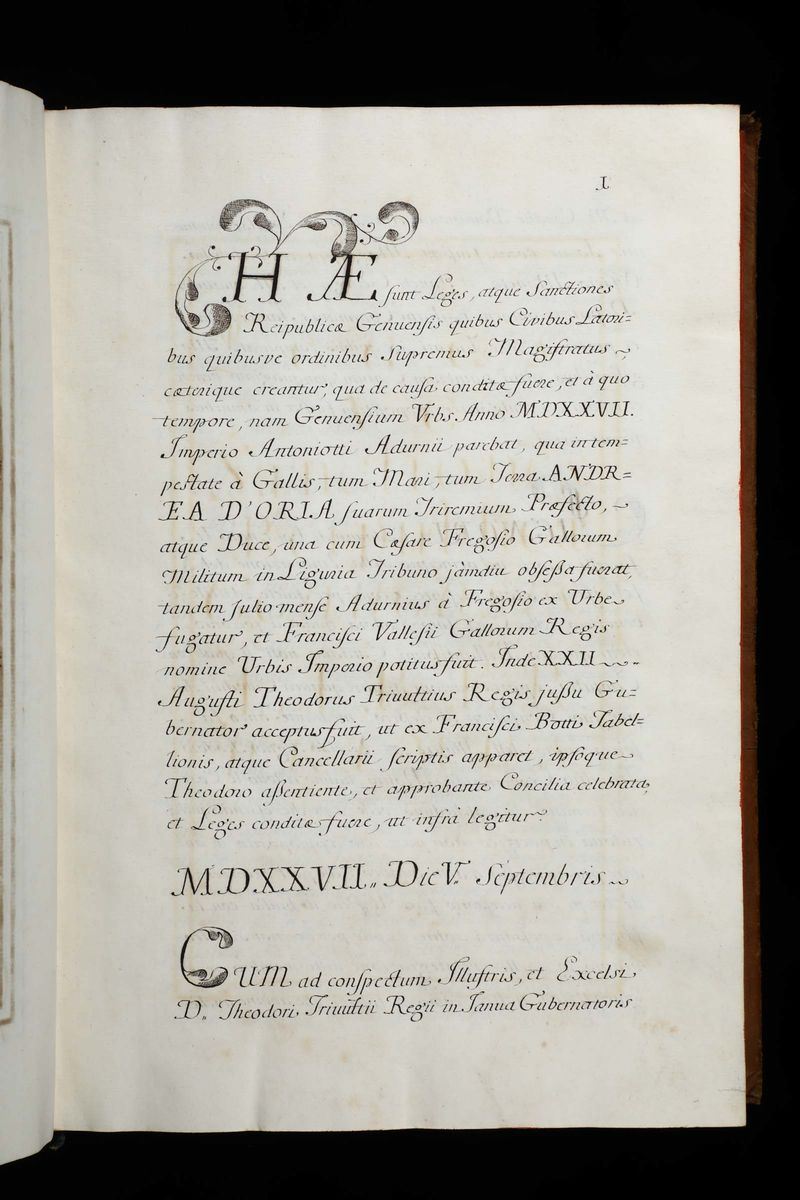 I
HÆ ſunt Leges, atque Sanctiones
Reipublicæ Genuenſis quibus Civibus Latori=
bus quibusve ordinibus Supremus Magiſtratus ~
cæterique creantur, qua de cauſa conditæ fuere, et à quo
tempore, nam Genuenſium Vrbs Anno MDXXVII.
Imperio Antoniotti Adurnii parebat, qua in tem=
peſtate à Gallis, tum Mari, tum Terra ANDR=
EA D'ORIA ſuarum Triremium Præfecto, ~
atque Duce, una cum Cæſare Fregoſio Gallorum
Militum in Liguria Tribuno jamdiu obſeſſa fuerat,
tandem Julio menſe Adurnius à Fregoſio ex Urbe
fugatur, et Franciſci Valleſii Gallorum Regis
nomine Urbis Imperio potitus fuit. Inde XXII ~
Auguſti Theodorus Triuultius Regis juſſu Gu=
bernator acceptus fuit, ut ex Franciſci Botti Tabel=
lionis, atque Cancellarii ſcriptis apparet, ipſoque ~
Theodoro aſſentiente, et approbante Concilia celebrata,
et Leges conditæ fuere, ut infrà legitur.
MDXXVII,, Die V. Septembris ~
CUM ad conſpectum Illuſtris, et Excelsi
D,, Theodori Triuultii Regii in Janua Gubernatoris